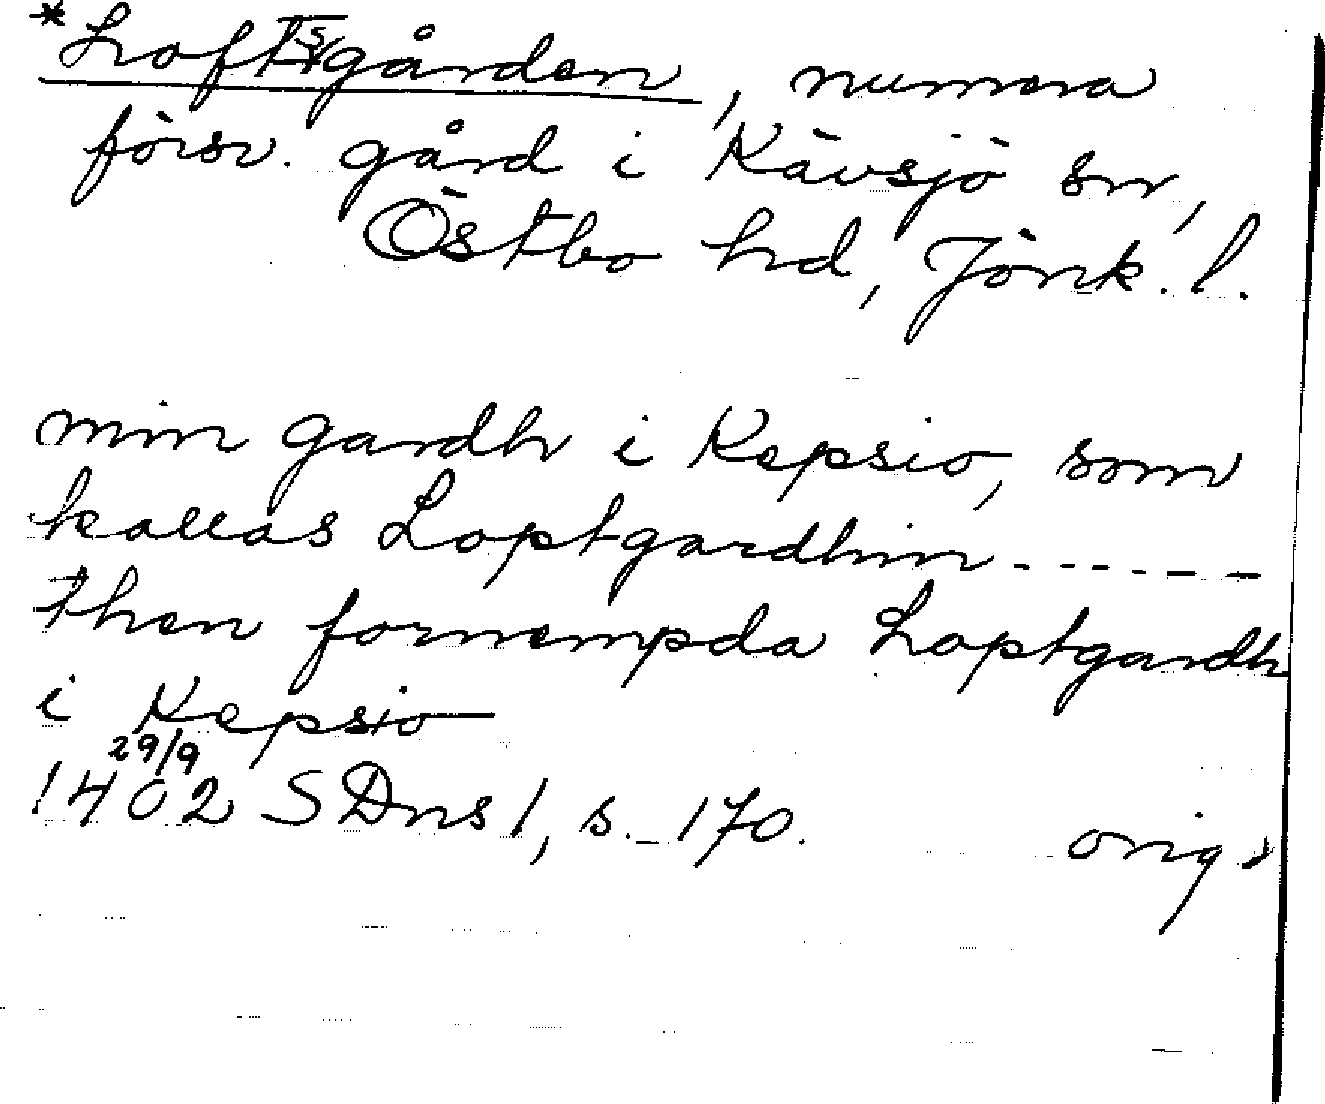 *Loftsgården, numera
försv. gård i Kävsjö sn,
Östbo hd, Jönk. l.
min gardh i Kepsio, som
kallas Loptgardhin - - - - - -
then fornempda Loptgardh
i Kepsio
29/9
1402 SDns 1, s. 170. orig.